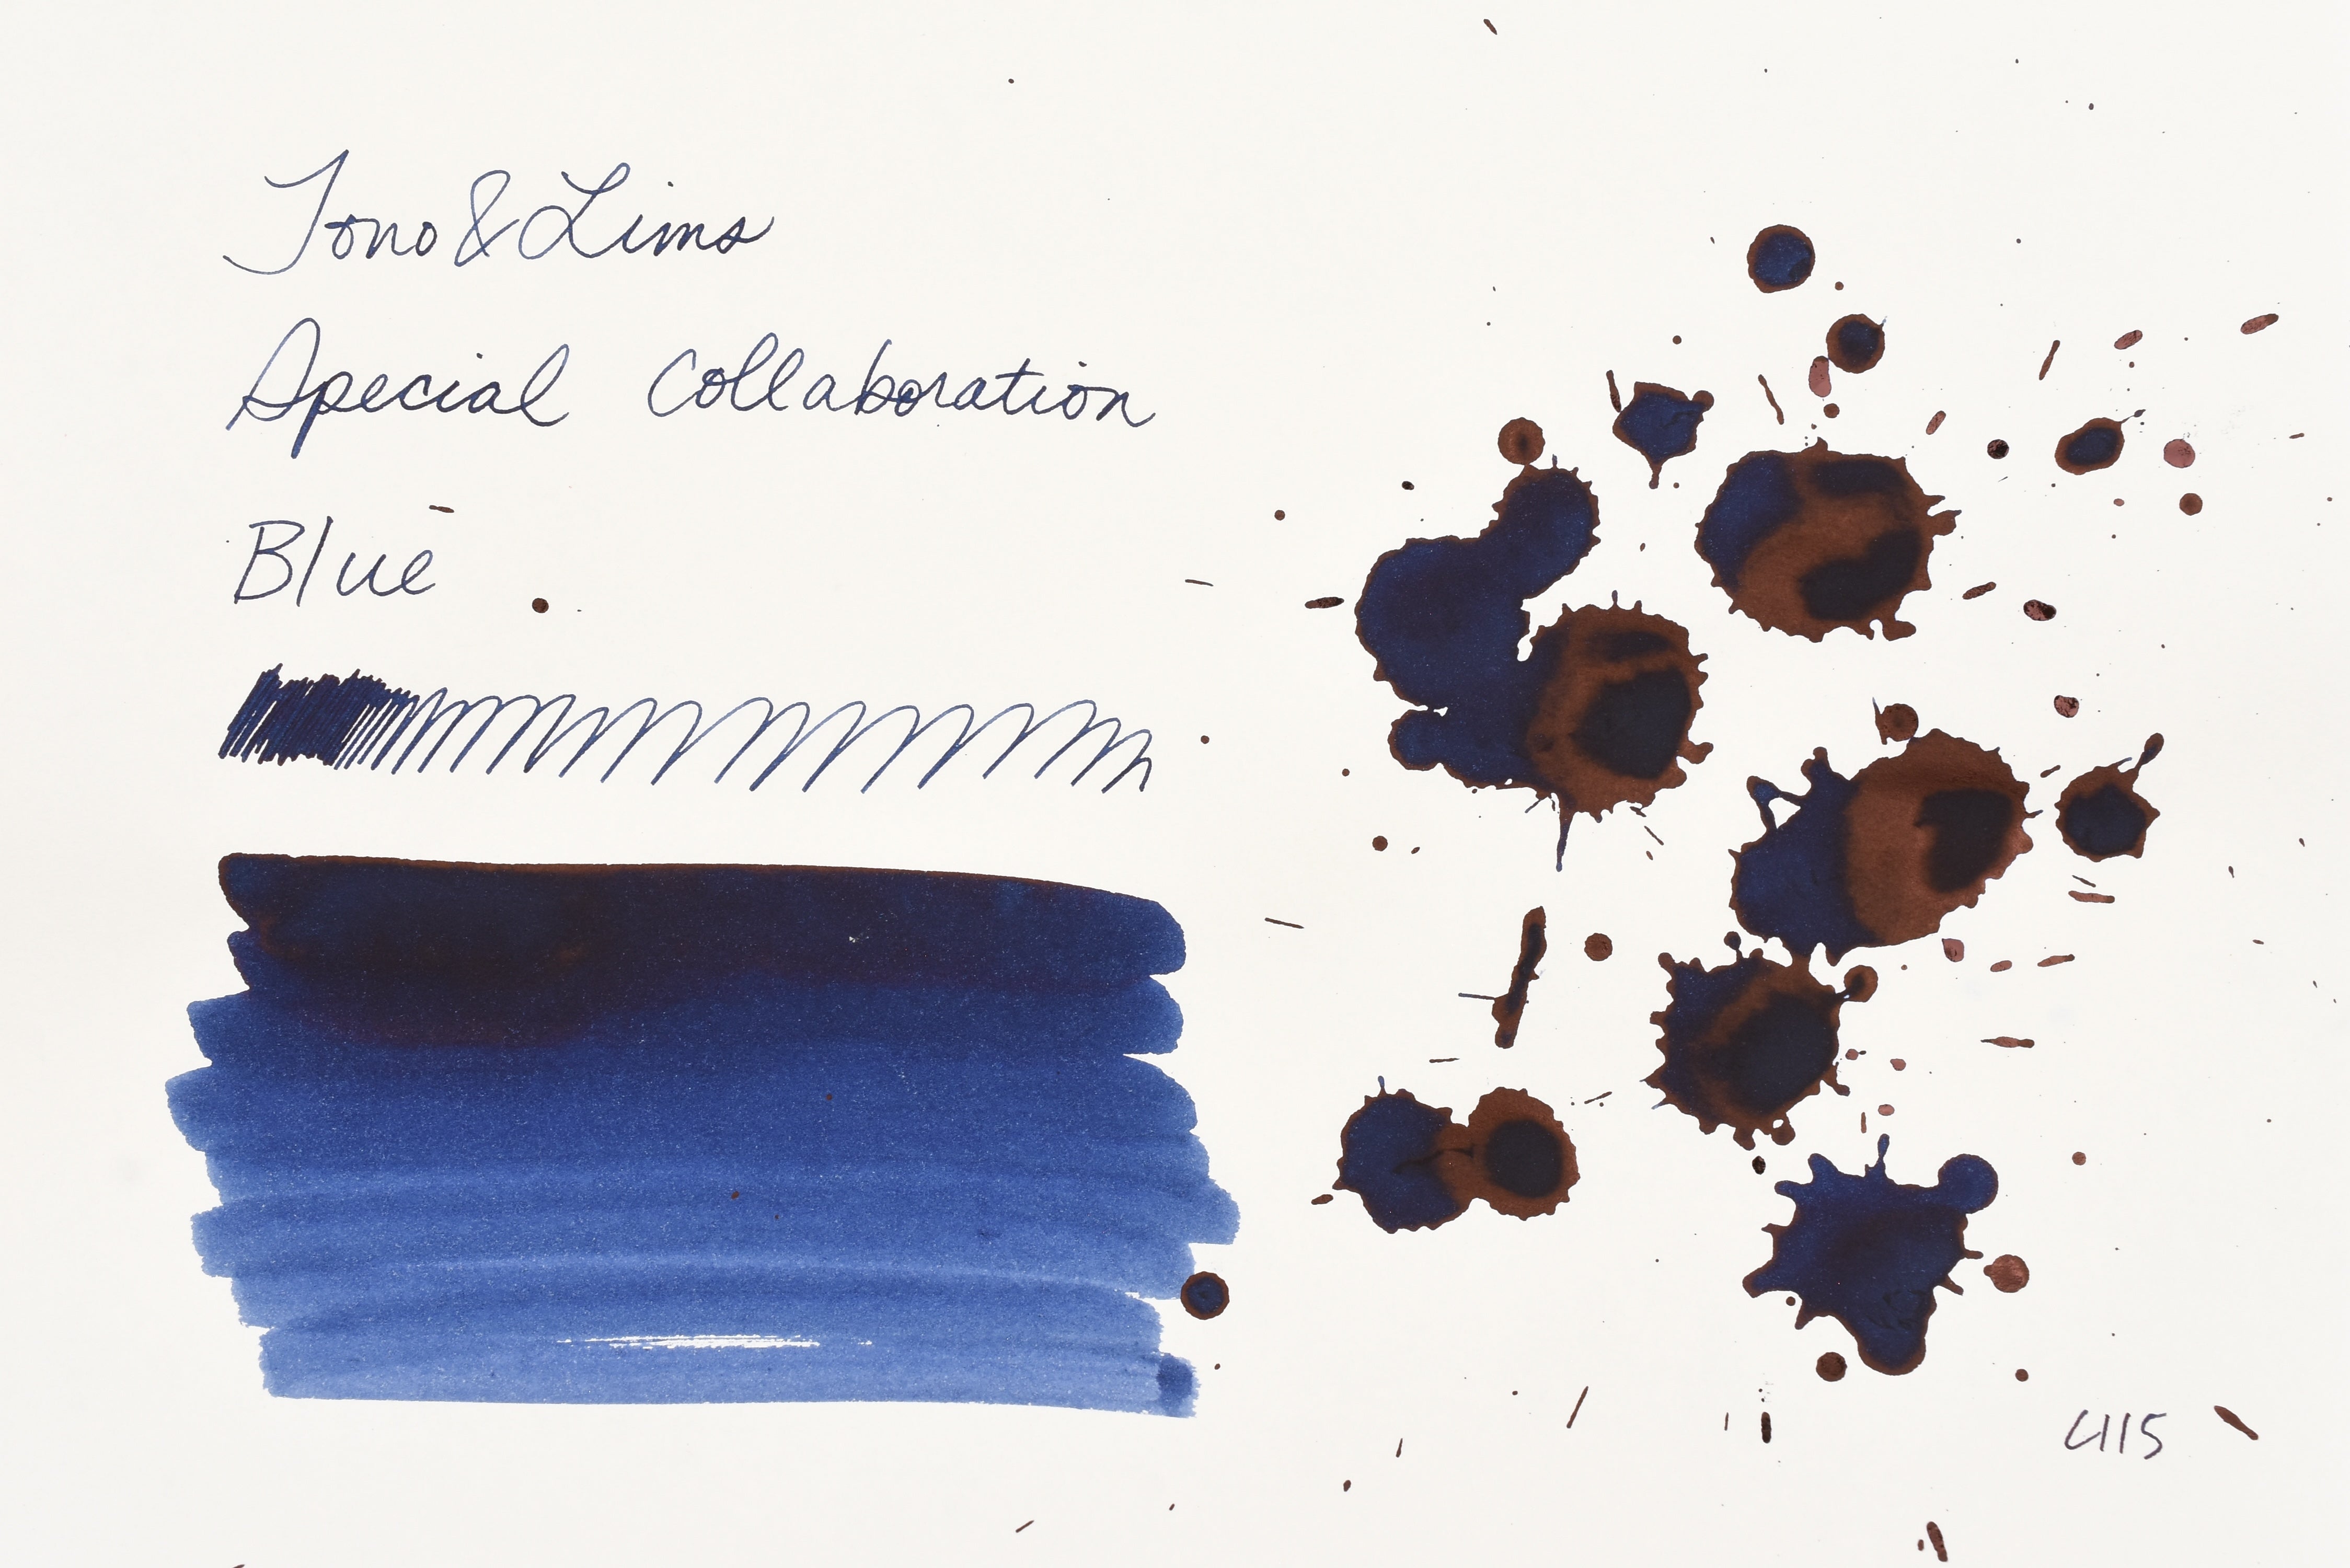 Tono & Lims
Special Collaboration
Blue
C115